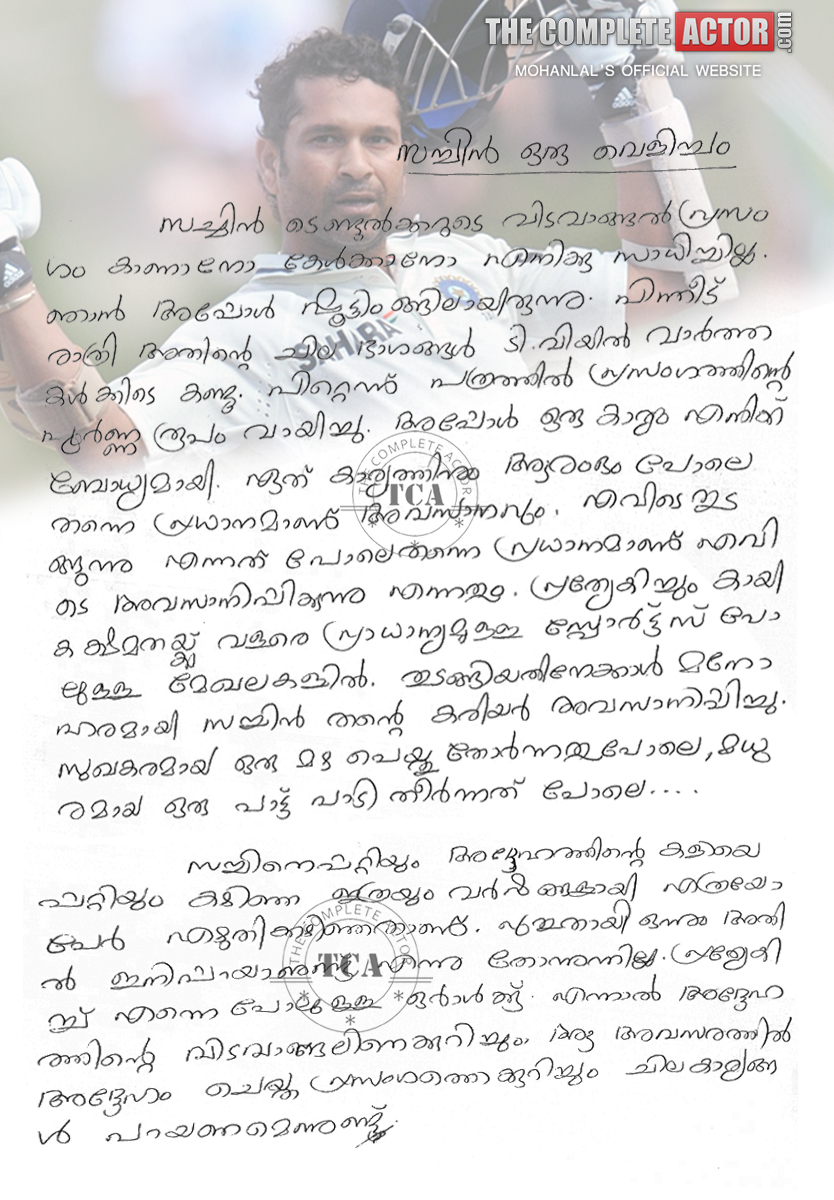 THE COMPLETE ACTOR.com
MOHANLAL'S OFFICIAL WEBSITE
സച്ചിൻ ഒരു വെളിച്ചം
സച്ചിൻ ടെണ്ടുൽക്കറുടെ വിടവാങ്ങൽ പ്രസം
ഗം കാണാനോ കേൾക്കാനോ എനിക്കു സാധിച്ചില്ല.
ഞാൻ അപ്പോൾ ഷൂട്ടിംങ്ങിലായിരുന്നു. പിന്നീട്
രാത്രി അതിന്റെ ചില ഭാഗങ്ങൾ ടി.വിയിൽ വാർത്ത
കൾക്കിടെ കണ്ടു. പിറ്റെന്ന് പത്രത്തിൽ പ്രസംഗത്തിന്റെ
പൂർണ്ണ രൂപം വായിച്ചു. അപ്പോൾ ഒരു കാര്യം എനിക്ക്
ബോധ്യമായി. ഏത് കാര്യത്തിന്റെ ആരംഭം പോലെ
തന്നെ പ്രധാനമാണ് അവസാനവും. എവിടെ തുട
ങ്ങുന്നു എന്നത് പോലെതന്നെ പ്രധാനമാണ് എവി
ടെ അവസാനിപ്പിക്കുന്നു എന്നതും. പ്രത്യേകിച്ചും കായി
ക ക്ഷമതയ്ക്ക് വളരെ പ്രാധാന്യമുള്ള സ്പോർട്ട്സ് പോ
ലുള്ള മേഖലകളിൽ. തുടങ്ങിയതിനേക്കാൾ മനോ
ഹരമായി സച്ചിൻ തന്റെ കരിയർ അവസാനിപ്പിച്ചു.
സുഖകരമായ ഒരു മഴ പെയ്തു തോർന്നതുപോലെ, മധു
രമായ ഒരു പാട്ട് പാടി തീർന്നത് പോലെ....
സച്ചിനെപ്പറ്റിയും അദ്ദേഹത്തിന്റെ കളിയെ
പ്പറ്റിയും കഴിഞ്ഞ ഇത്രയും വർഷങ്ങളായി എത്രയോ
പേർ എഴുതിക്കഴിഞ്ഞതാണ്. പുതുതായി ഒന്നും അതി
ൽ ഇനിപ്പറയാനുണ്ടെന്നു തോന്നുന്നില്ല. പ്രത്യേകി
ച്ച് എന്നെ പോലുള്ള ഒരാൾക്ക്. എന്നാൽ അദ്ദേഹ
ത്തിന്റെ വിടവാങ്ങലിനെക്കുറിച്ചും, ആ അവസരത്തിൽ
അദ്ദേഹം ചെയ്ത പ്രസംഗത്തെക്കുറിച്ചും ചില കാര്യങ്ങ
ൾ പറയണമെന്നുണ്ട്.
SAHARA
THE COMPLETE ACTOR
TCA
THE COMPLETE ACTOR
TCA